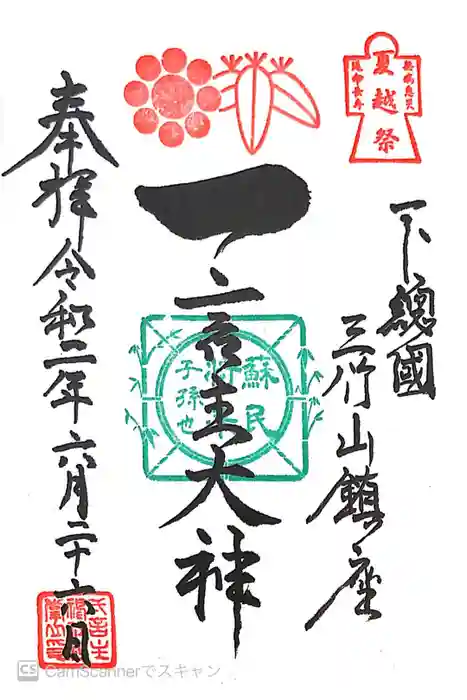 夏越祭
無病息災
延命長寿
下總國
三竹山鎮座
一言主大神
蘇民
将来
子孫也
奉拝
令和二年六月二十六日
CS CamScannerでスキャン